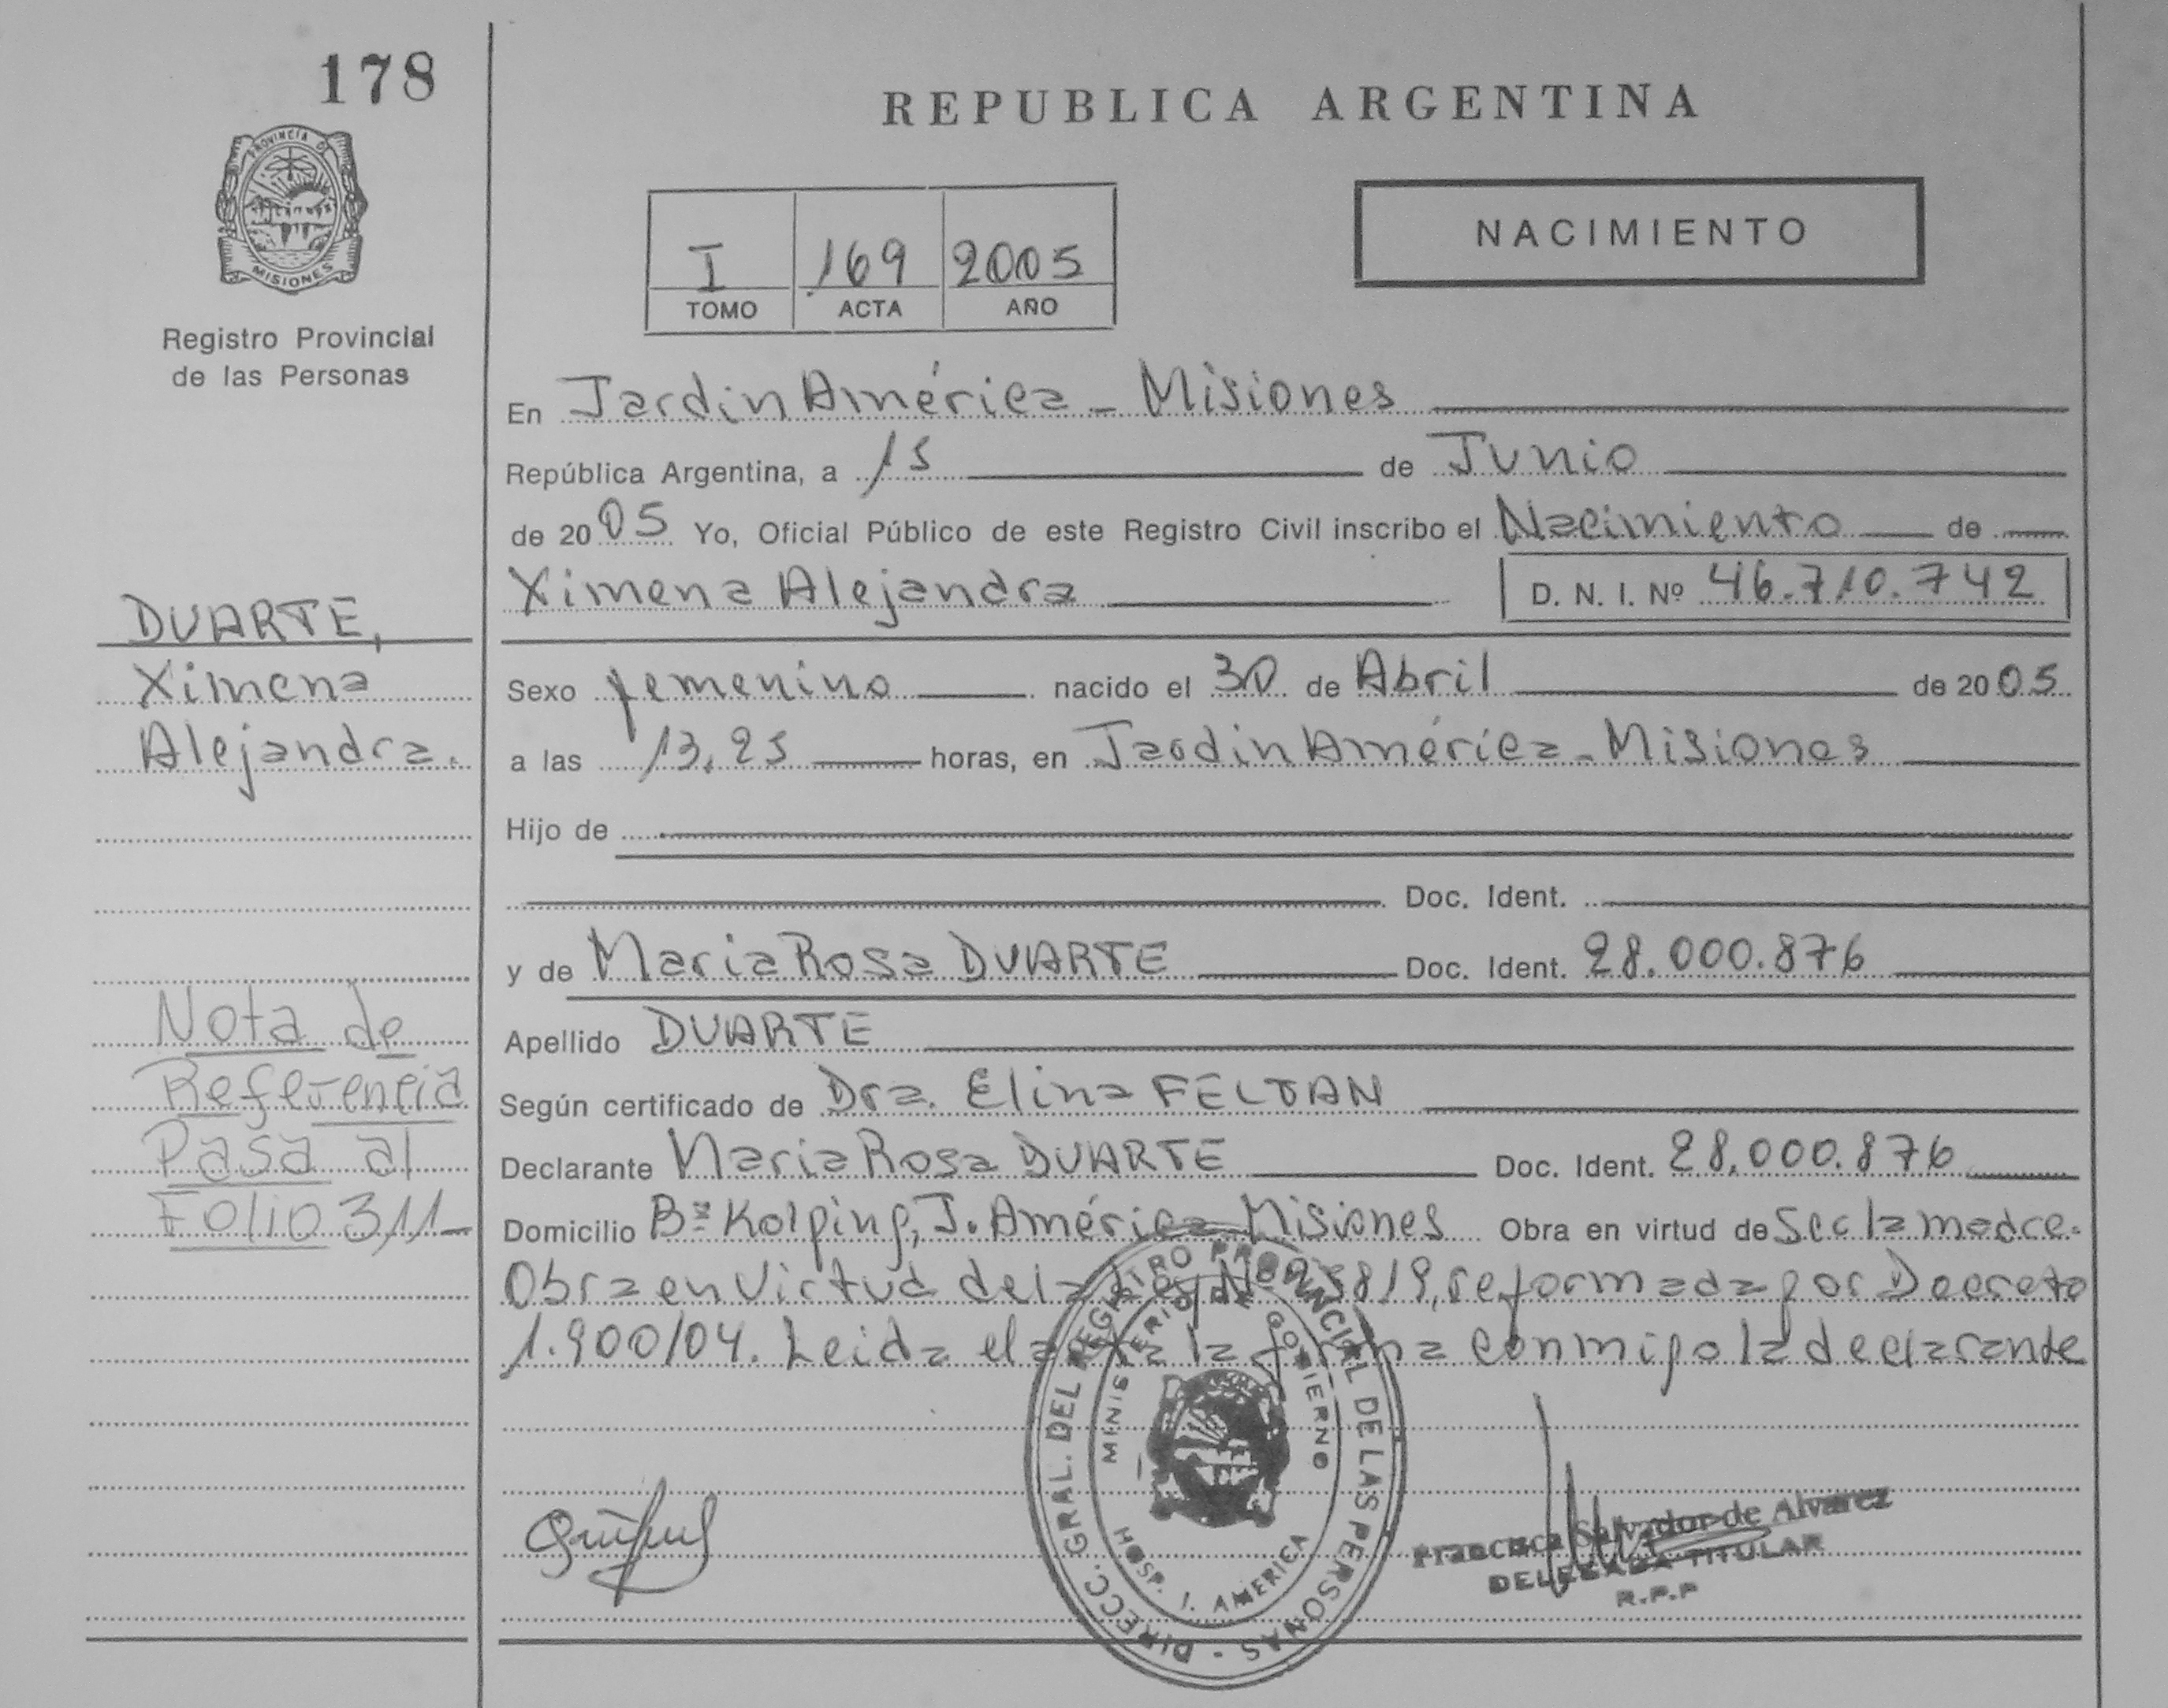 178
PROVINCIA D
MISIONES
Registro Provincial
de las Personas
REPUBLICA ARGENTINA
NACIMIENTO
I 169 2005
TOMO ACTA AÑO
En Jardin América - Misiones
República Argentina, a 15 de Junio
de 2005 Yo, Oficial Público de este Registro Civil inscribo el Nacimiento de
Ximena Alejandra D. N. I. Nº 46.710.742
DUARTE,
Ximena
Alejandra.
Sexo femenino nacido el 30 de Abril de 2005
a las 13,25 horas, en Jardin América - Misiones
Hijo de
Doc. Ident.
y de Maria Rosa DUARTE Doc. Ident. 28.000.876
Apellido DUARTE
Según certificado de Dra. Elina
Declarante Maria Rosa DUARTE Doc. Ident. 28.000.876
Domicilio Bº Kolping, J. América - Misiones Obra en virtud de Ser la madre.
Obra en Virtud de la Ley Nº 25819, reformada por Decreto
1.900/04. Leida el acta la firma conmigo la declarante
Nota de
Referencia
Pasa al
Folio 311
DIRECC. GRAL. DEL REGISTRO PROVINCIAL DE LAS PERSONAS -
MINISTERIO DE GOBIERNO
HOSP. J. AMERICA
Francisca Salvador de Alvarez
DELEGADA TITULAR
R.P.P